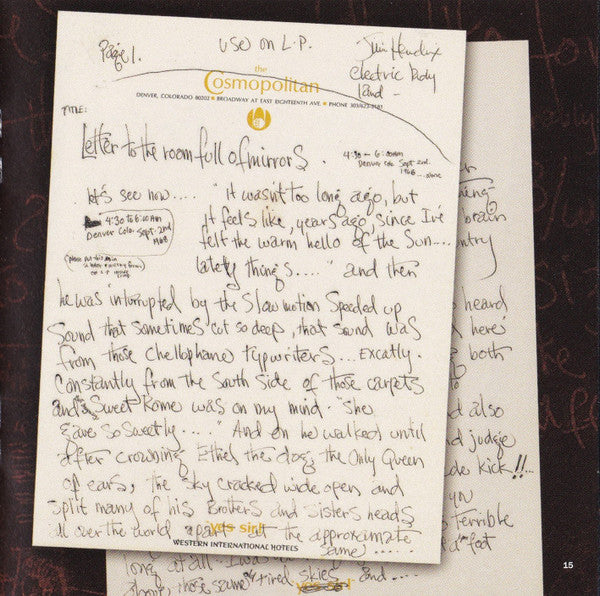 Page 1.
USE ON L.P.
Jimi Hendrix
electric Lady
land -
the
Cosmopolitan
DENVER, COLORADO 80202 • BROADWAY AT EAST EIGHTEENTH AVE • PHONE 303/623-2181
TITLE:
Letter to the room full of mirrors.
4:30 - 6:00AM
Denver Colo. Sept. 2nd.
1968
let's see now.... "It wasn't too long ago, but
it feels like, years ago, since I've
felt the warm hello of the Sun....
4:30 to 6:00AM
Denver Colo. Sept. 2nd
1968
lately things....." and then
(please put this in
he was interrupted by the slow motion speeded up
sound that sometimes cut so deep, that sound was
from those chellophane typwriters.... Excatly.
Constantly from the South Side of those carpets
and Sweet Rome was on my mind. "She
gave so sweetly....." And on he walked until
after crowning Ethel the dog, the Only Queen
of ears, the sky cracked wide open and
split many of his Brothers and Sisters heads
all over the world apart at the approximate
same .....
yes sir!
WESTERN INTERNATIONAL HOTELS
brain
heard
here
both
also
judge
kick!!...
Terrible
a foot
long
those same tired skies and....
yes sir!
15